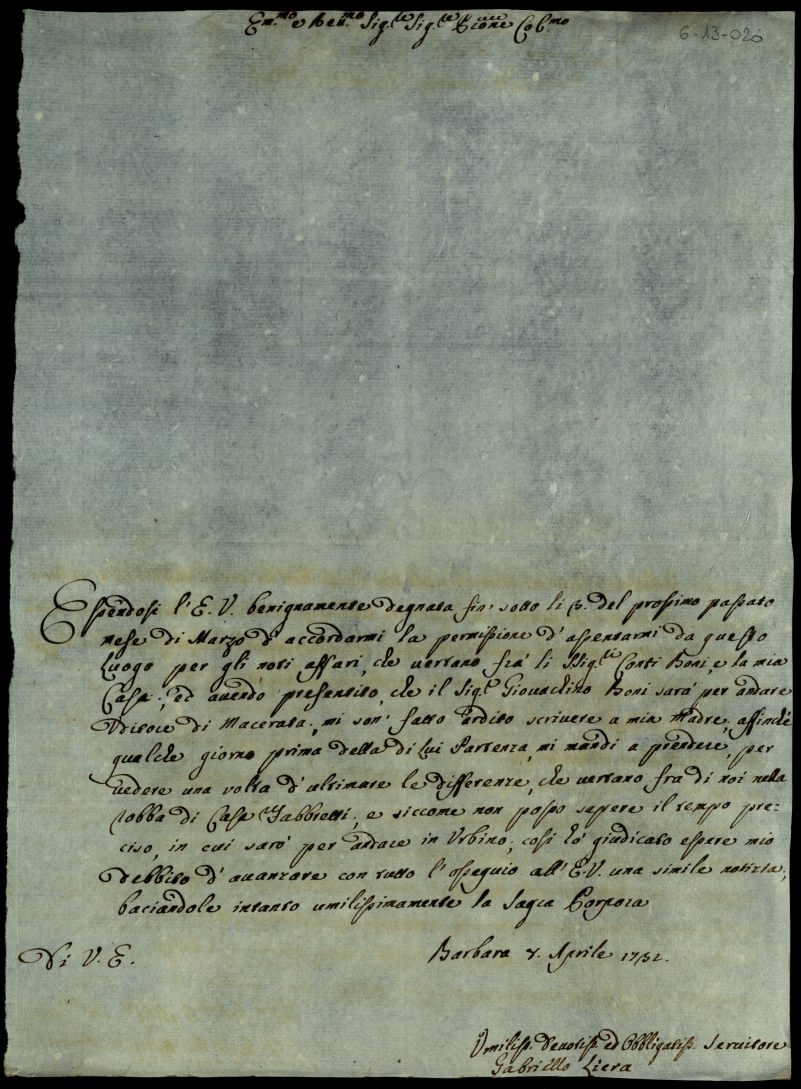 Em.mo e Reu.mo Sig.re Sig.re Prone Col.mo
6-13-026
Essendosi l'E. V. benignamente degnata fin' sotto li 13. del prossimo passato
mese di Marzo d'accordarmi la permissione d'assentarmi da questo
Luogo per gli noti affari, che uertano frà li SSig.ri Conti Boni, e la mia
Casa; ed auendo presentito, che il Sig.r Giouachino Boni sarà per andare
Uditore di Macerata, mi son' fatto ardito scriuere a mia Madre, affinche
qualche giorno prima della di Lui Partenza, mi mandi a prendere, per
uedere una uolta d'ultimare le differenze, che uertano fra di noi nella
robba di Casa Fabbretti, e siccome non posso sapere il tempo pre=
ciso, in cui sarò per andare in Urbino; così hò giudicato essere mio
debbito d'auanzare con tutto l'ossequio all'E.V. una simile notizia;
baciandole intanto umilissimamente la Sagra Porpora
Di V. E.
Barbara Aprile
Vmiliss. Deuotiss. ed Obbligatiss. Seruitore
Gabriello Liera